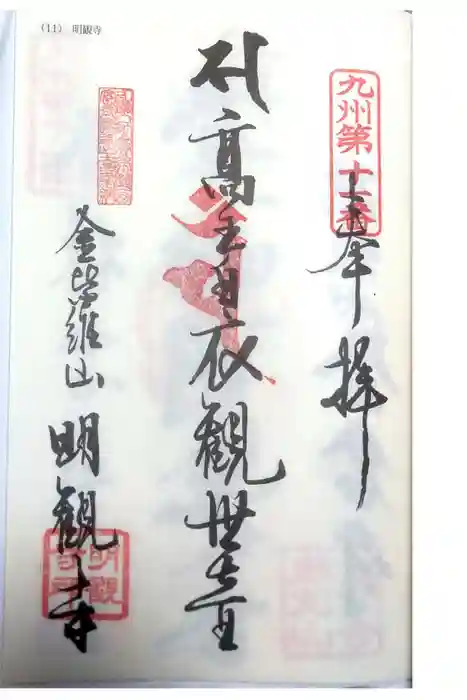 (11) 明観寺
九州第十一番
奉拝
髙王白衣観世音
金比羅山
明観寺
明観寺印